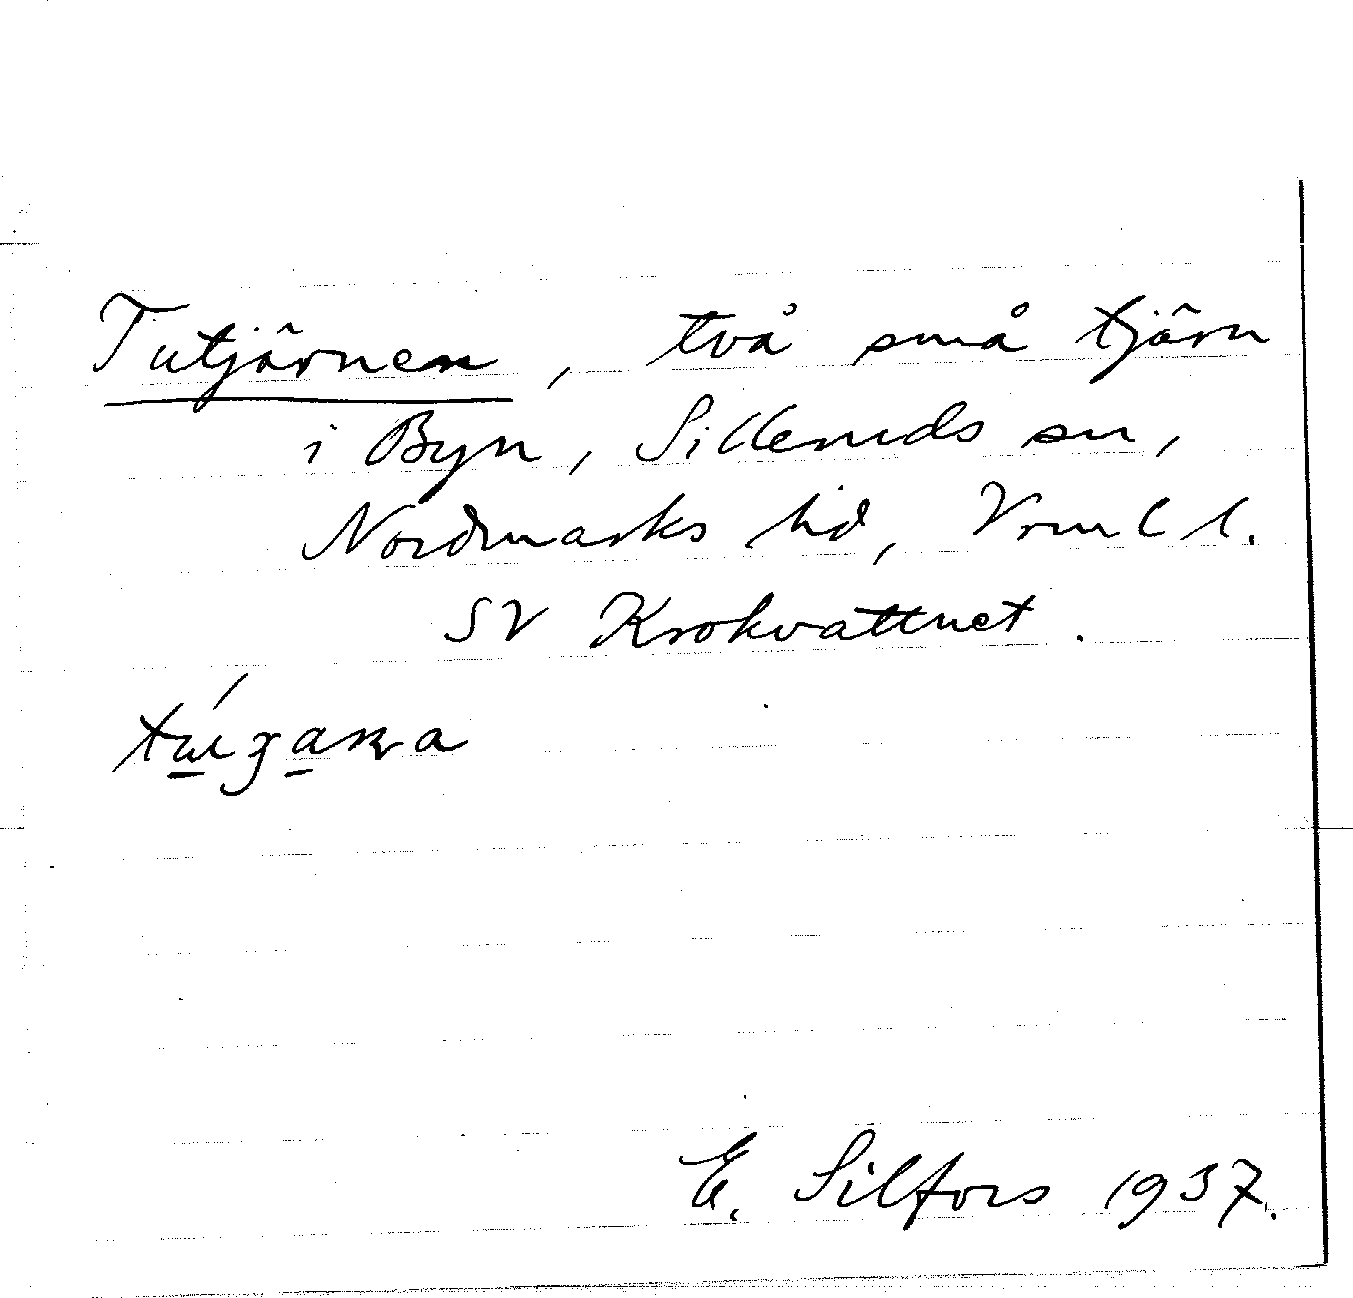 Tutjärnen, två små tjärn
i Byn, Silleruds sn,
Nordmarks hd, Vrml l.
SV Krokvattnet.
E. Silfors 1937.